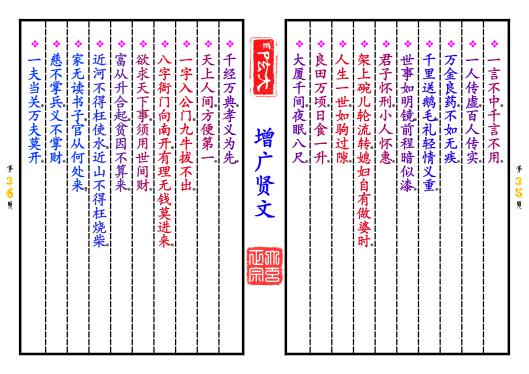 一言不中,千言不用。
一人传虚,百人传实。
万金良药,不如无疾。
千里送鹅毛,礼轻情义重。
世事如明镜,前程暗似漆。
君子怀刑,小人怀惠。
架上碗儿轮流转,媳妇自有做婆时。
人生一世,如驹过隙。
良田万顷,日食一升。
大厦千间,夜眠八尺。
第35页
增广贤文
千经万典,孝义为先。
天上人间,方便第一。
一字入公门,九牛拔不出。
八字衙门向南开,有理无钱莫进来。
欲求天下事,须用世间财。
富从升合起,贫因不算来。
近河不得枉使水,近山不得枉烧柴。
家无读书子,官从何处来。
慈不掌兵,义不掌财。
一夫当关,万夫莫开。
第36页